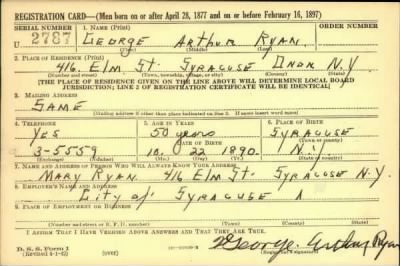 REGISTRATION CARD—(Men born on or after April 28, 1877 and on or before February 16, 1897)
SERIAL NUMBER 1. NAME (Print) ORDER NUMBER
U 2787 GEORGE Arthur RYAN
(First) (Middle) (Last)
2. PLACE OF RESIDENCE (Print)
416 Elm St. SYRACUSE ONON. N.Y.
(Number and street) (Town, township, village, or city) (County) (State)
[THE PLACE OF RESIDENCE GIVEN ON THE LINE ABOVE WILL DETERMINE LOCAL BOARD
JURISDICTION; LINE 2 OF REGISTRATION CERTIFICATE WILL BE IDENTICAL]
3. MAILING ADDRESS
SAME
[Mailing address if other than place indicated on line 2. If same insert word same]
4. TELEPHONE 5. AGE IN YEARS 6. PLACE OF BIRTH
YES 50 years SYRACUSE
DATE OF BIRTH (Town or county)
3-5559 10 22 1890. N.Y.
(Exchange) (Number) (Mo.) (Day) (Yr.) (State or country)
7. NAME AND ADDRESS OF PERSON WHO WILL ALWAYS KNOW YOUR ADDRESS
MARY RYAN 416 Elm St. SYRACUSE N.Y.
8. EMPLOYER'S NAME AND ADDRESS
City of SYRACUSE
9. PLACE OF EMPLOYMENT OR BUSINESS
(Number and street or R. F. D. number) (Town) (County) (State)
I AFFIRM THAT I HAVE VERIFIED ABOVE ANSWERS AND THAT THEY ARE TRUE.
D. S. S. Form 1
(Revised 4-1-42) (over) George Arthur Ryan